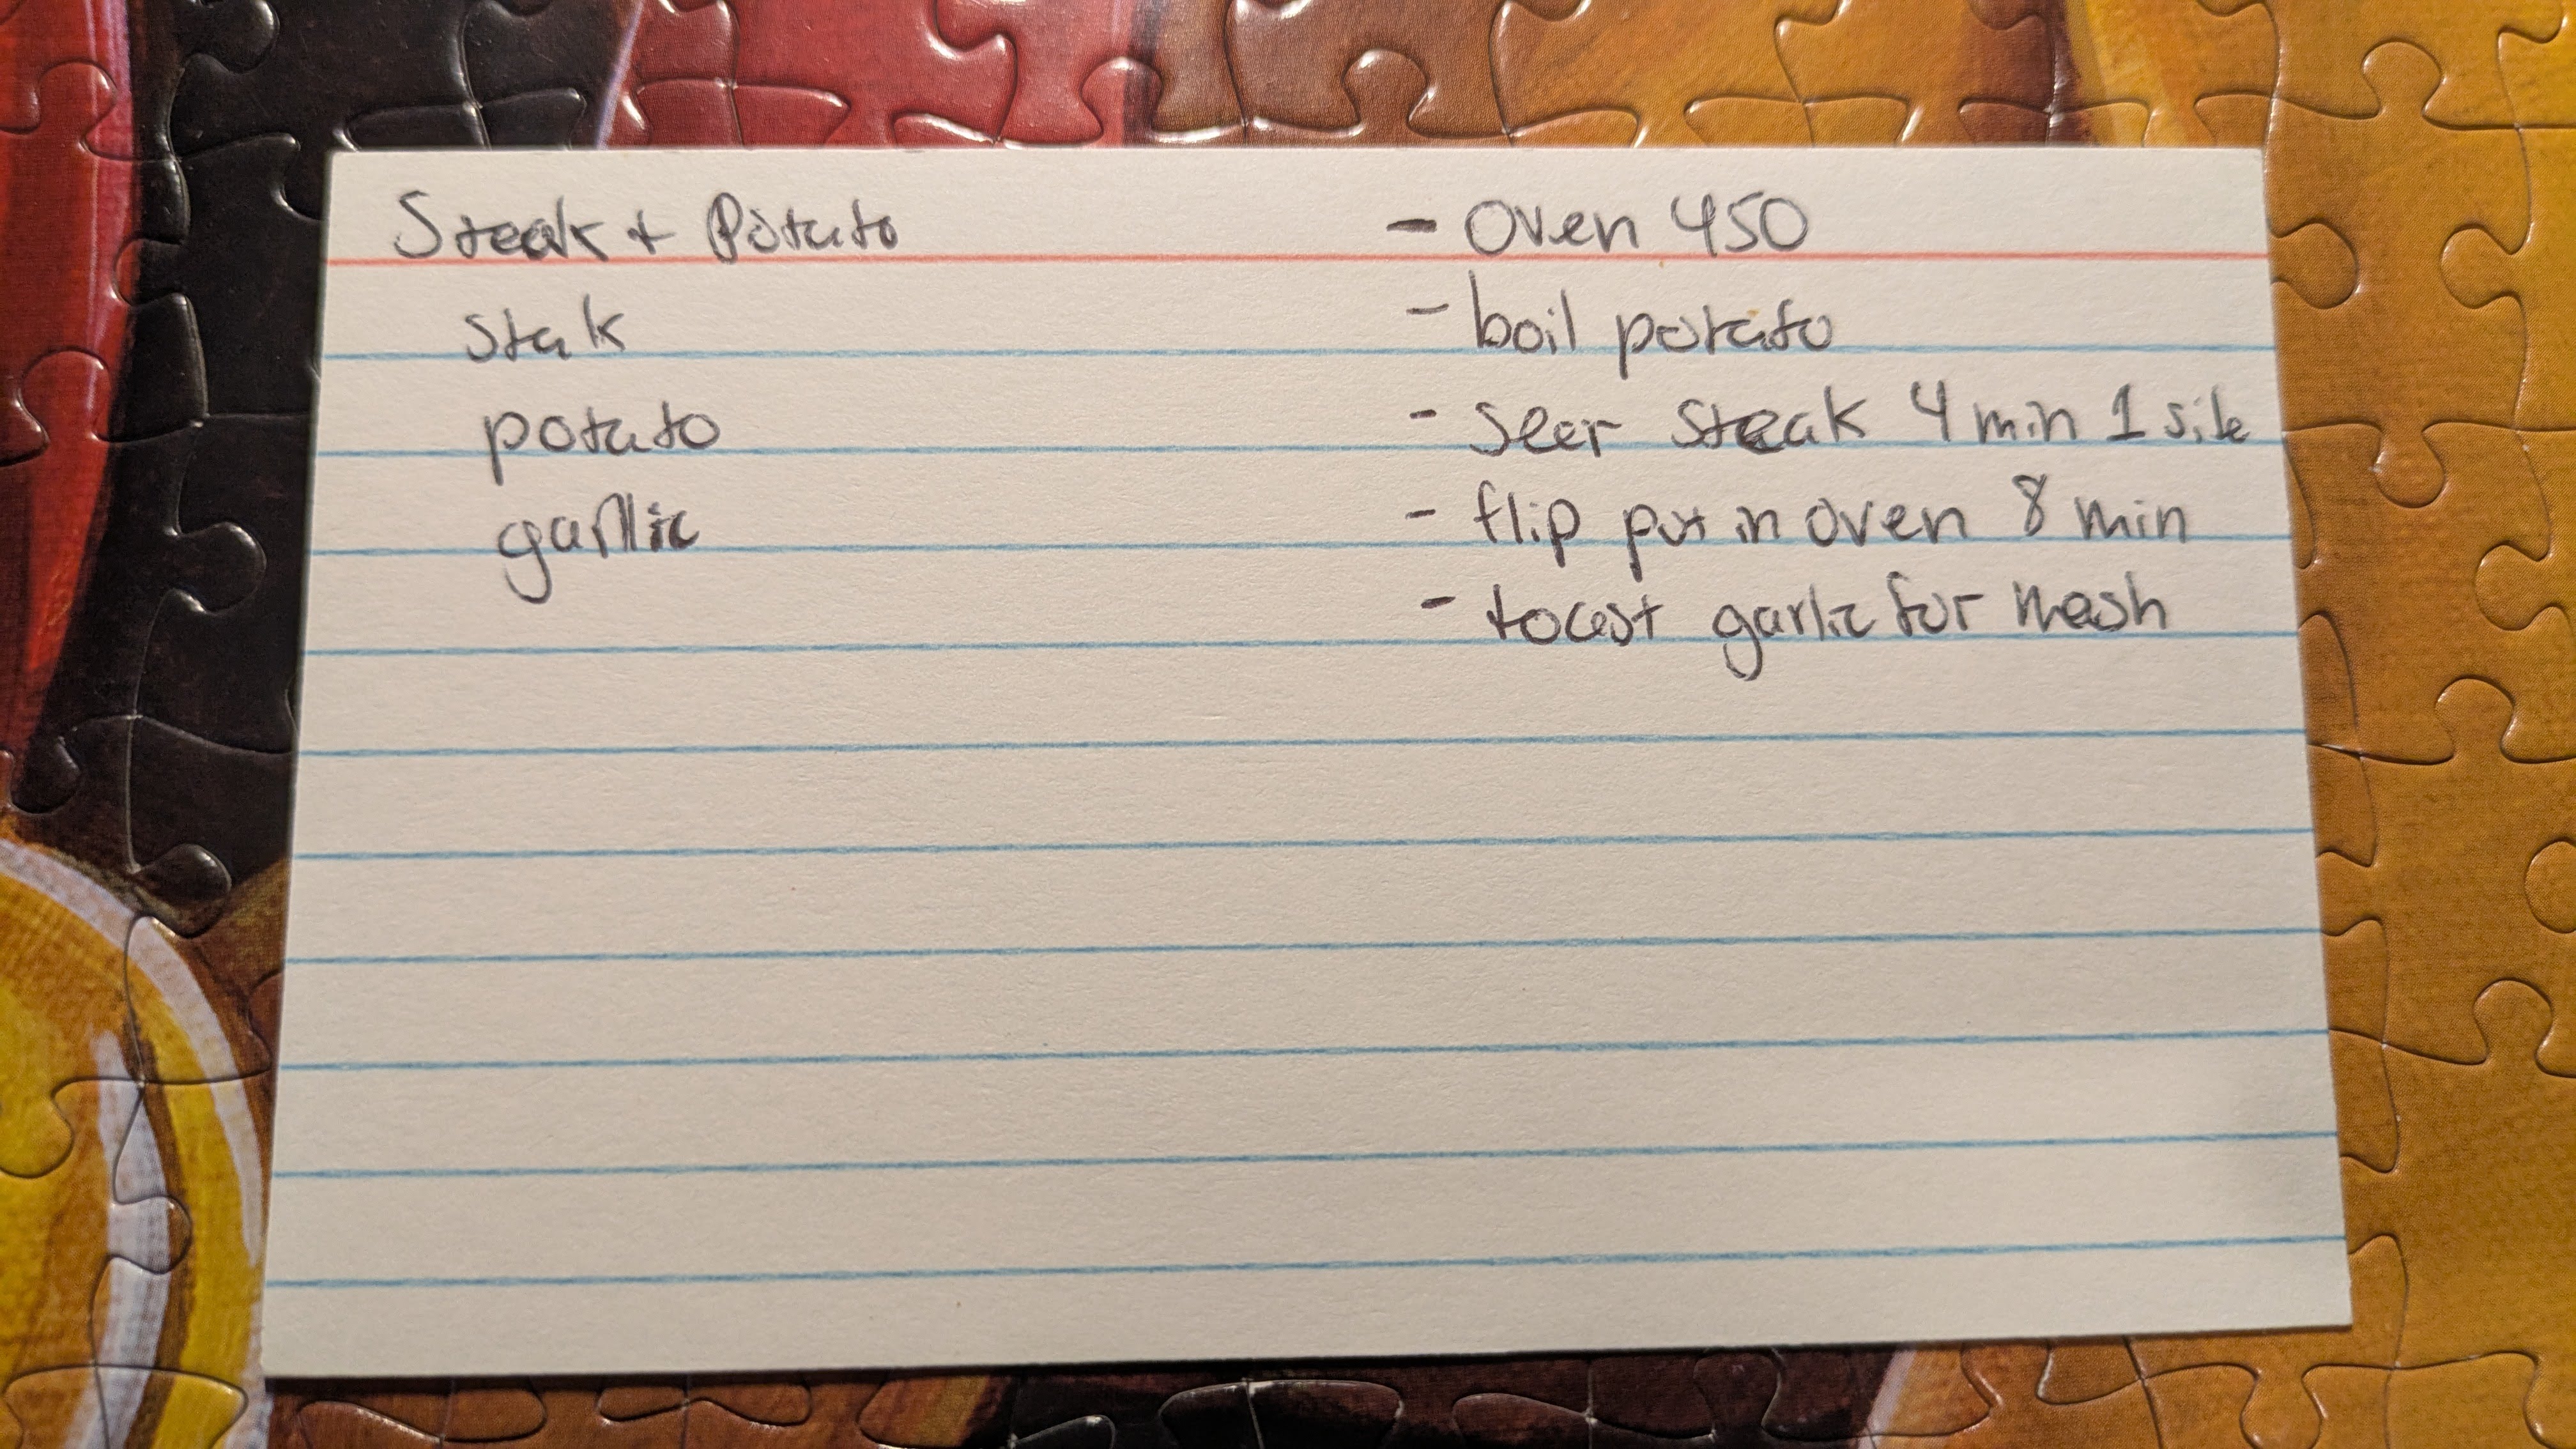 Steak + Potato
stak
potato
garlic
- Oven 450
- boil potato
- seer steak 4 min 1 side
- flip put in oven 8 min
- toast garlic for mash